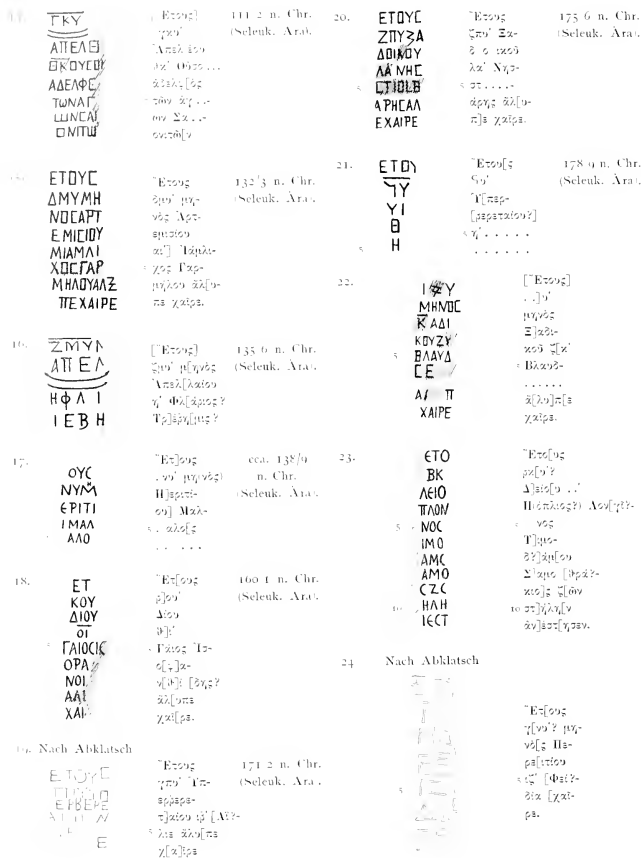 ΓΚΥ
ΑΠΕΛΕΘ
ΘΚΟΥCΟΥ
ΑΔΕΛΦΕ
ΤΩΝΑΓ
ΟΝΙΤΩ
Ἔτους]
γκυ´
Ἀπελ έου
111 2 n. Chr.
(Seleuk. Ära).
ΕΤΟΥC
ΔΜΥΜΗ
ΝΟCΑΡΤ
ΕΜΙCΙΟΥ
ΜΙΑΜΛΙ
ΧΟCΓΑΡ
ΜΗΛΟΥΑΛΞ
ΠΕΧΑΙΡΕ
Ἔτους
δμυ´ μη-
νὸς Ἀρτ-
εμισίου
αι´] Ἰάμλι-
χος Γαρ-
μήλου ἄλ[υ-
πε χαῖρε.
132/3 n. Chr.
(Seleuk. Ära).
16.
ΖΜΥΛ
ΑΠΕΛ
ΗΦΛΙ
ΙΕΒΗ
[Ἔτους]
ζμυ´ μ[ηνὸς
Ἀπελ[λαίου
η´ Φλ[άριος?
Τρ]έβη[μις?
135 6 n. Chr.
(Seleuk. Ära).
17.
ΟΥC
ΝΥΜ
ΕΡΙΤΙ
ΙΜΑΛ
ΑΛΟ
Ἔτ]ους
. νυ´ μη(νὸς)
Π]εριτί-
ου] Μαλ-
. αλο[ς
. . . . .
cca. 138/9
n. Chr.
(Seleuk. Ära).
18.
ΕΤ
ΚΟΥ
ΔΙΟΥ
ΟΙ
5 ΓΑΙΟCΙC
ΟΡΑ
ΝΟΙ
ΑΛΙ
ΧΑΙ
Ἔτ[ους
ρ]ου´
Δίου
θ]ι´
5 Γάιος Ἰσ-
ἄλ[υπε
χαῖ[ρε.
160 1 n. Chr.
(Seleuk. Ära).
19. Nach Abklatsch
ΕΤΟΥC
ΕΡΒΕΡΕ
Ἔτους
γπυ´ Ὑπ-
ερβερε-
τ]αίου ιβ´ [Αἴ?-
5 λιε ἄλυ[πε
χ[α]ῖρε
171 2 n. Chr.
(Seleuk. Ära).
20.
ΕΤΟΥC
ΖΠΥΞΑ
ΔΟΙΚΟΥ
ΛΑ´ΝΗC
5 CΤΙΟLΒ
ΑΡΗCΑΛ
ΕΧΑΙΡΕ
Ἔτους
ζπυ´ Ξα-
δ ο ικοῦ
λα´ Νησ-
5 στ . . . . -
άρης ἄλ[υ-
π]ε χαῖρε.
175 6 n. Chr.
(Seleuk. Ära).
21.
ΕΤΟΥ
ϟΥ
ΥΙ
Θ
5 Η
Ἔτου[ς
ϟυ´
Ὑ[περ-
[βερεταίου?]
5 η´ . . . . .
. . . . . .
178 9 n. Chr.
(Seleuk. Ära).
22.
ΜΗΝΟC
ΚΑΔΙ
ΚΟΥΖΥ
5 ΒΛΑΥΔ
CΕ
Α Π
ΧΑΙΡΕ
[Ἔτους]
. .]υ´
μηνὸς
Ξ]αδι-
κοῦ ζ[κ´
5 Βλαυδ-
. . . . . .
ἄ[λυ]π[ε
χαῖρε.
23.
ΕΤΟ
ΒΚ
ΛΕΙΟ
ΠΛΟΝ
5 ΝΟC
ΙΜΟ
ΑΜC
ΑΜΟ
CΖC
10 ΗΛΗ
ΙΕCΤ
Ἔτο[υς
ρκ[υ´?
Δ]είο[υ . .´
Π(όπλιος?) Λον[γῖ?-
5 νος
Τ]ιμο-
δ?]άμ[ου
Σ]αμο [θρᾴ?-
κιο]ς ζ[ῶν
10 στ]ήλη[ν
ἀν]έστ[ησεν.
24 Nach Abklatsch
Ἔτ[ους
γ[νυ´? μη-
νὸ[ς Πε-
ρε[ιτίου
5 ιζ´ [Φει?-
δία [χαῖ-
ρε.